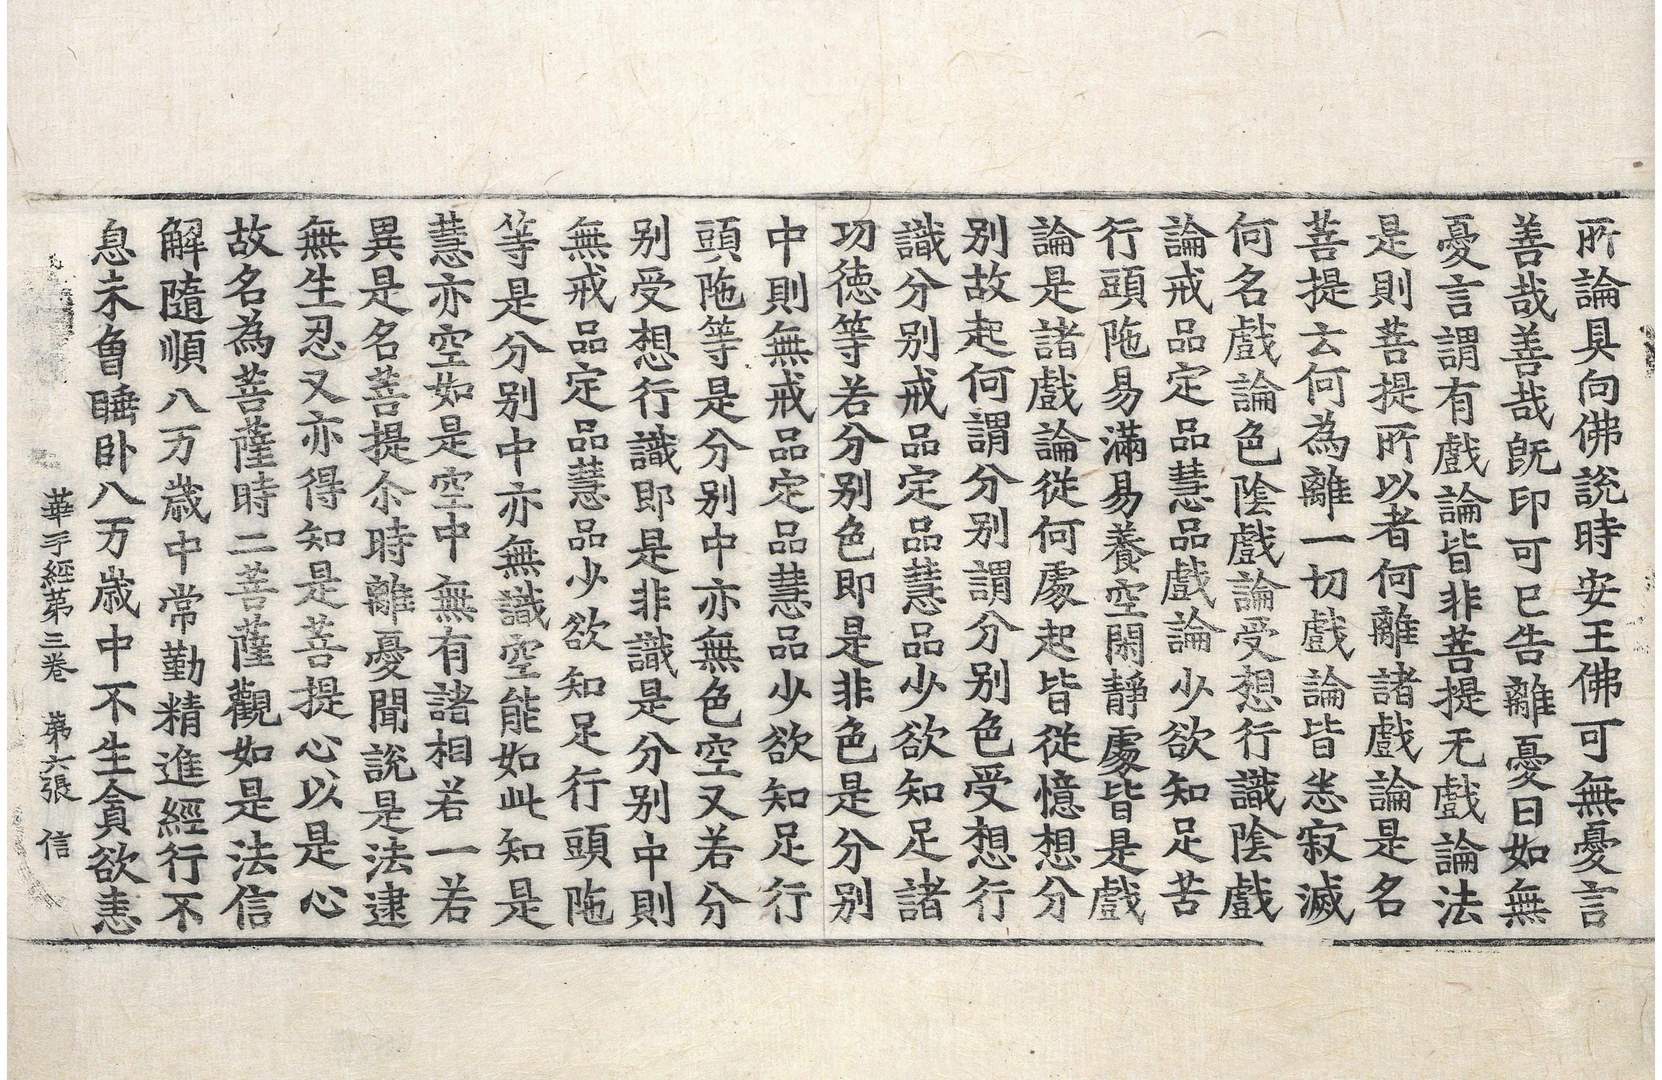 所論具向佛說時安王佛可無憂言
善哉善哉旣印可已告離憂曰如無
憂言謂有戲論皆非菩提无戲論法
是則菩提所以者何離諸戲論是名
菩提云何為離一切戲論皆悉寂滅
何名戲論色陰戲論受想行識陰戲
論戒品定品慧品戲論少欲知足苦
行頭陁易滿易養空閑靜處皆是戲
論是諸戲論從何處起皆從憶想分
別故起何謂分別謂分別色受想行
識分別戒品定品慧品少欲知足諸
功德等若分別色即是非色是分別
中則無戒品定品慧品少欲知足行
頭陁等是分別中亦無色空又若分
別受想行識即是非識是分別中則
無戒品定品慧品少欲知足行頭陁
等是分別中亦無識空能如此知是
慧亦空如是空中無有諸相若一若
異是名菩提尒時離憂聞說是法逮
無生忍又亦得知是菩提心以是心
故名為菩薩時二菩薩觀如是法信
解隨順八万歲中常勤精進經行不
息未曾睡卧八万歲中不生貪欲恚
華手經第三卷　第六張　信